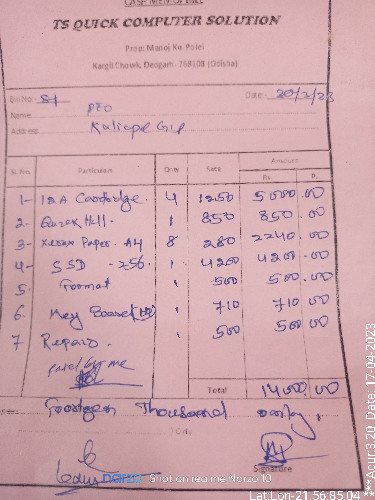 CASH MEMO / BILL
TS QUICK COMPUTER SOLUTION
Prop: Manoj Ku. Palei
Kargil Chowk, Deogarh - 768108 (Odisha)
Bill No. 81 Date: 20/2/23
Name PEO
Address Kaliapal G.P
Sl. No. Particulars Qnty Rate Amount
Rs. P.
1- 12A Cartridge. 4 1250 5000.00
2- Quick Hill. 1 850 850.00
3- Xerox Paper - A4 8 280 2240.00
4- SSD - 256. 1 4200 4200.00
5. Format 1 500 500.00
6. Key Board (HP) 1 710 710.00
7 Repair - 1 500 500.00
paid by me
Total 14000.00
Fourteen Thousand only.
Signature
narzo Shot on realme Narzo 10
Lat:Lon-21.56:85.04
***Acur:3.20 Date: 17-04-2023